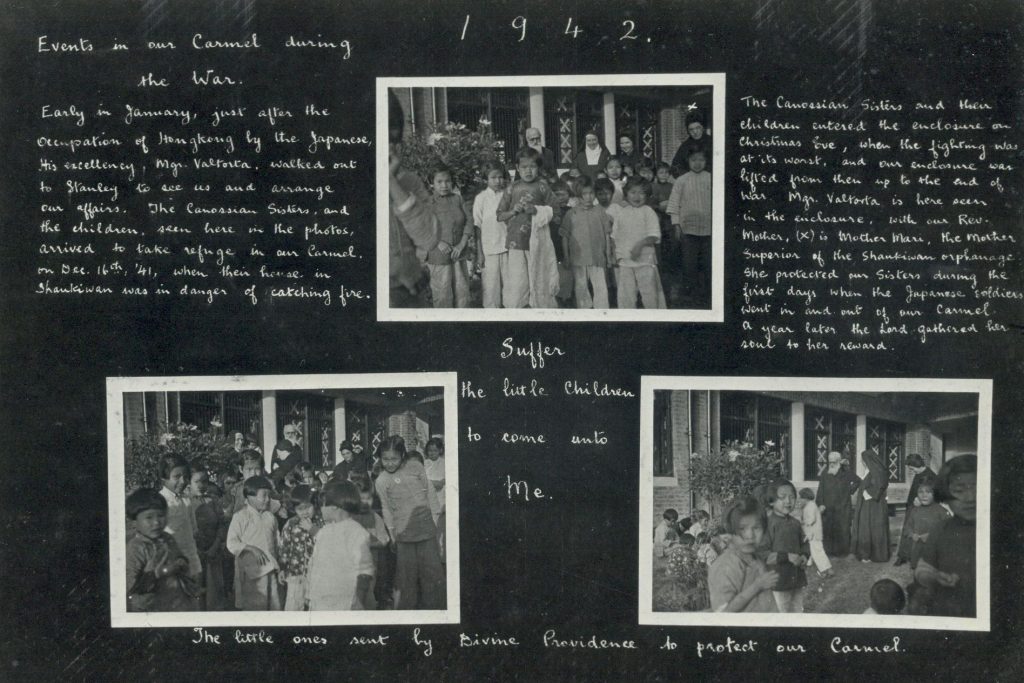 1942.
Events in our Carmel during
the War.
Early in January, just after the
occupation of Hongkong by the Japanese,
His excellency, Mgr. Valtorta, walked out
to Stanley to see us and arrange
our affairs. The Canossian Sisters, and
the children, seen here in the photos,
arrived to take refuge in our Carmel.
on Dec. 16th, '41, when their house in
Shaukiwan was in danger of catching fire.
x
The Canossian Sisters and their
children entered the enclosure on
Christmas Eve, when the fighting was
at its worst, and our enclosure was
lifted from then up to the end of
war. Mgr. Valtorta is here seen
in the enclosure, with our Rev.
Mother, (x) is Mother Mari, the Mother
Superior of the Shaukiwan orphanage
She protected our Sisters during the
first days when the Japanese soldiers
went in and out of our Carmel.
A year later the Lord gathered her
soul to her reward.
Suffer
the little Children
to come unto
Me.
The little ones sent by Divine Providence to protect our Carmel.